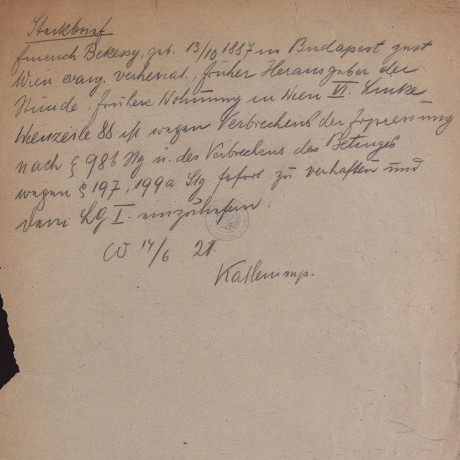 Steckbrief
Emerich Bekessy, geb. 13/10 1887 in Budapest zust
Wien evang. verheirat., früher Herausgeber der
Stunde, frühere Wohnung in Wien VI. Linke
Wienzeile 88 ist wegen Verbrechens der Erpressung
nach § 98b Stg u. des Verbrechens des Betruges
wegen § 197, 199a Stg sofort zu verhaften und
dem LG I. einzuliefern.
14/6